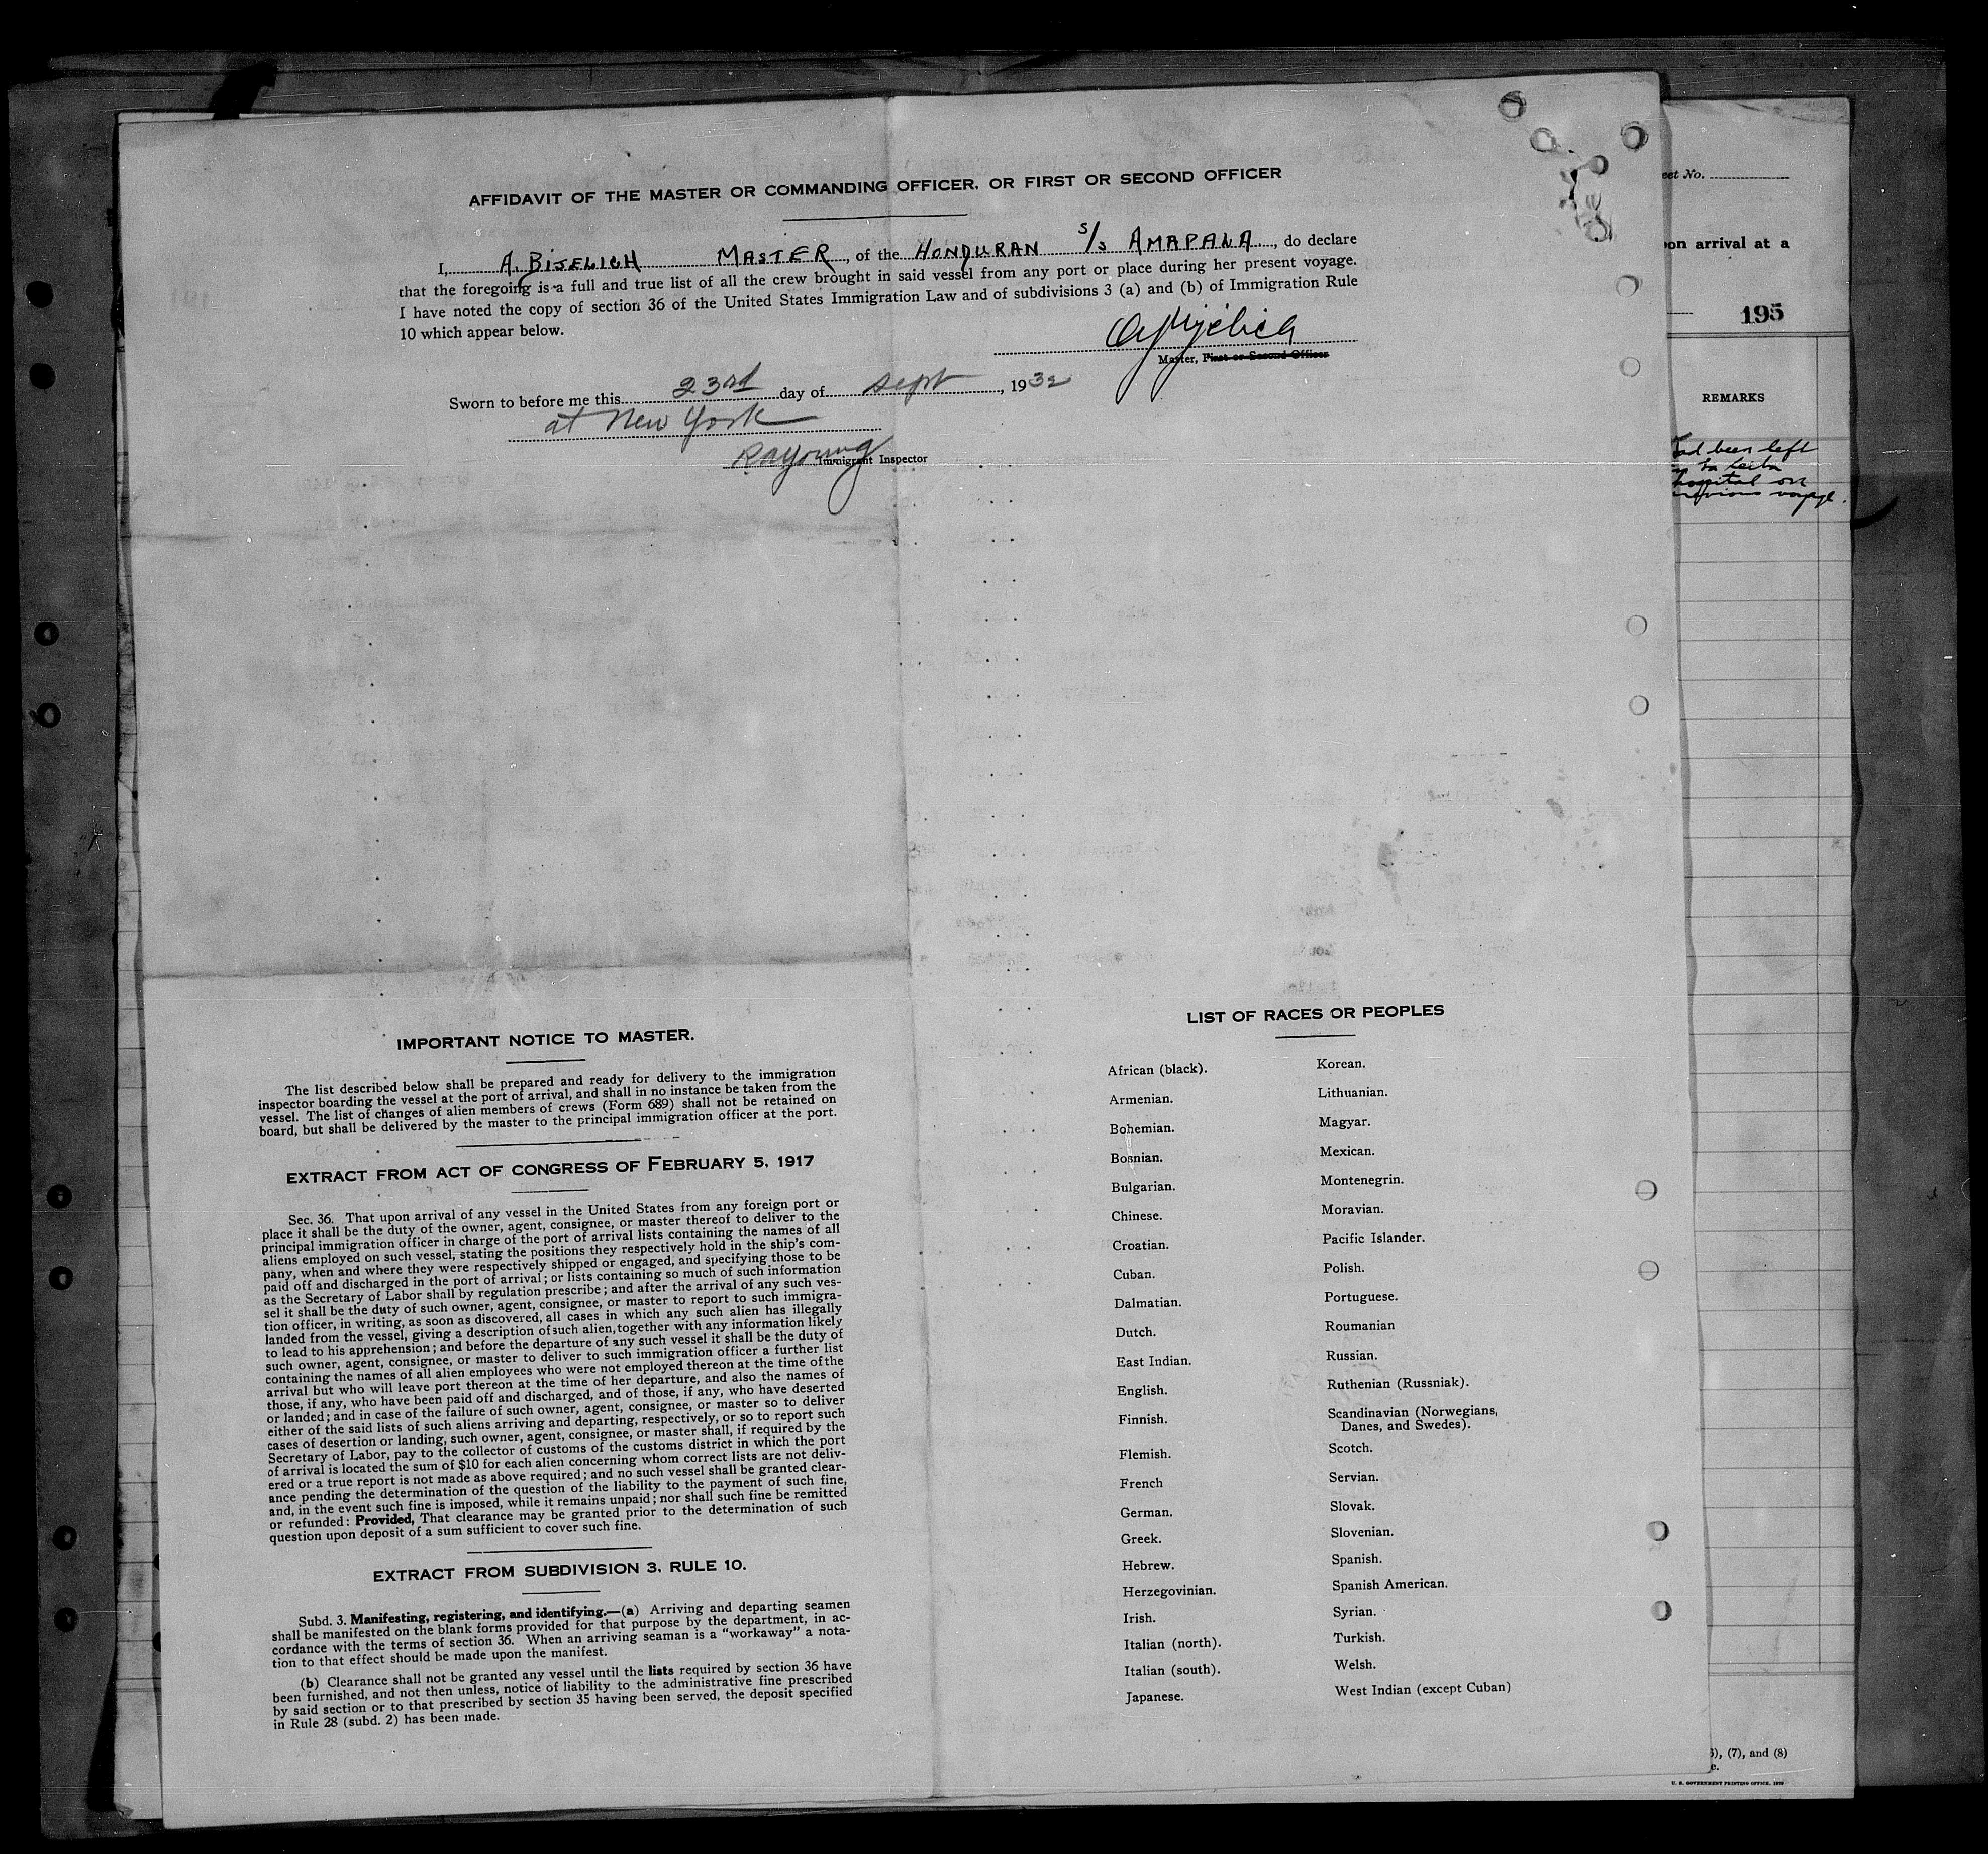 AFFIDAVIT OF THE MASTER OR COMMANDING OFFICER, OR FIRST OR SECOND OFFICER
I, A. BIJELICH MASTER, of the HONDURAN S/S AMAPALA, do declare
that the foregoing is a full and true list of all the crew brought in said vessel from any port or place during her present voyage.
I have noted the copy of section 36 of the United States Immigration Law and of subdivisions 3 (a) and (b) of Immigration Rule
10 which appear below.
A Bijelich
Master, First or Second Officer
Sworn to before me this 23rd day of Sept, 1932
at New York
RA Young
Immigrant Inspector
IMPORTANT NOTICE TO MASTER.
The list described below shall be prepared and ready for delivery to the immigration
inspector boarding the vessel at the port of arrival, and shall in no instance be taken from the
vessel. The list of changes of alien members of crews (Form 689) shall not be retained on
board, but shall be delivered by the master to the principal immigration officer at the port.
EXTRACT FROM ACT OF CONGRESS OF FEBRUARY 5, 1917
Sec. 36. That upon arrival of any vessel in the United States from any foreign port or
place it shall be the duty of the owner, agent, consignee, or master thereof to deliver to the
principal immigration officer in charge of the port of arrival lists containing the names of all
aliens employed on such vessel, stating the positions they respectively hold in the ship's com-
pany, when and where they were respectively shipped or engaged, and specifying those to be
paid off and discharged in the port of arrival; or lists containing so much of such information
as the Secretary of Labor shall by regulation prescribe; and after the arrival of any such ves-
sel it shall be the duty of such owner, agent, consignee, or master to report to such immigra-
tion officer, in writing, as soon as discovered, all cases in which any such alien has illegally
landed from the vessel, giving a description of such alien, together with any information likely
to lead to his apprehension; and before the departure of any such vessel it shall be the duty of
such owner, agent, consignee, or master to deliver to such immigration officer a further list
containing the names of all alien employees who were not employed thereon at the time of the
arrival but who will leave port thereon at the time of her departure, and also the names of
those, if any, who have been paid off and discharged, and of those, if any, who have deserted
or landed; and in case of the failure of such owner, agent, consignee, or master so to deliver
either of the said lists of such aliens arriving and departing, respectively, or so to report such
cases of desertion or landing, such owner, agent, consignee, or master shall, if required by the
Secretary of Labor, pay to the collector of customs of the customs district in which the port
of arrival is located the sum of $10 for each alien concerning whom correct lists are not deliv-
ered or a true report is not made as above required; and no such vessel shall be granted clear-
ance pending the determination of the question of the liability to the payment of such fine,
and, in the event such fine is imposed, while it remains unpaid; nor shall such fine be remitted
or refunded: Provided, That clearance may be granted prior to the determination of such
question upon deposit of a sum sufficient to cover such fine.
EXTRACT FROM SUBDIVISION 3, RULE 10.
Subd. 3. Manifesting, registering, and identifying.—(a) Arriving and departing seamen
shall be manifested on the blank forms provided for that purpose by the department, in ac-
cordance with the terms of section 36. When an arriving seaman is a "workaway" a nota-
tion to that effect should be made upon the manifest.
(b) Clearance shall not be granted any vessel until the lists required by section 36 have
been furnished, and not then unless, notice of liability to the administrative fine prescribed
by said section or to that prescribed by section 35 having been served, the deposit specified
in Rule 28 (subd. 2) has been made.
LIST OF RACES OR PEOPLES
African (black).
Armenian.
Bohemian.
Bosnian.
Bulgarian.
Chinese.
Croatian.
Cuban.
Dalmatian.
Dutch.
East Indian.
English.
Finnish.
Flemish.
French
German.
Greek.
Hebrew.
Herzegovinian.
Irish.
Italian (north).
Italian (south).
Japanese.
Korean.
Lithuanian.
Magyar.
Mexican.
Montenegrin.
Moravian.
Pacific Islander.
Polish.
Portuguese.
Roumanian
Russian.
Ruthenian (Russniak).
Scandinavian (Norwegians,
Danes, and Swedes).
Scotch.
Servian.
Slovak.
Slovenian.
Spanish.
Spanish American.
Syrian.
Turkish.
Welsh.
West Indian (except Cuban)
eet No.
on arrival at a
195
REMARKS
had been left
in La Ceiba
hospital on
previous voyage.
), (7), and (8)
U. S. GOVERNMENT PRINTING OFFICE